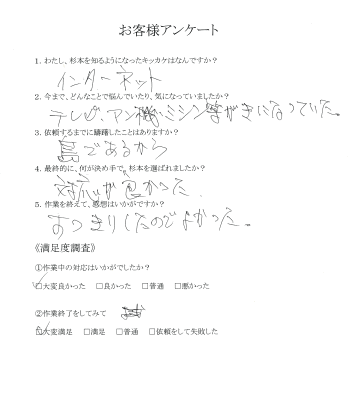 お客様アンケート
1. わたし、杉本を知るようになったキッカケはなんですか？
インターネット
2. 今まで、どんなことで悩んでいたり、気になっていましたか？
テレビ、アン機、ミシン等がきになっていた。
3. 依頼するまでに躊躇したことはありますか？
島であるから
4. 最終的に、何が決め手で、杉本を選ばれましたか？
対応が良かった．
5. 作業を終えて、感想はいかがですか？
すっきりしたのでよかった。
《満足度調査》
①作業中の対応はいかがでしたか？
□大変良かった □良かった □普通 □悪かった
②作業終了をしてみて
□大変満足 □満足 □普通 □依頼をして失敗した